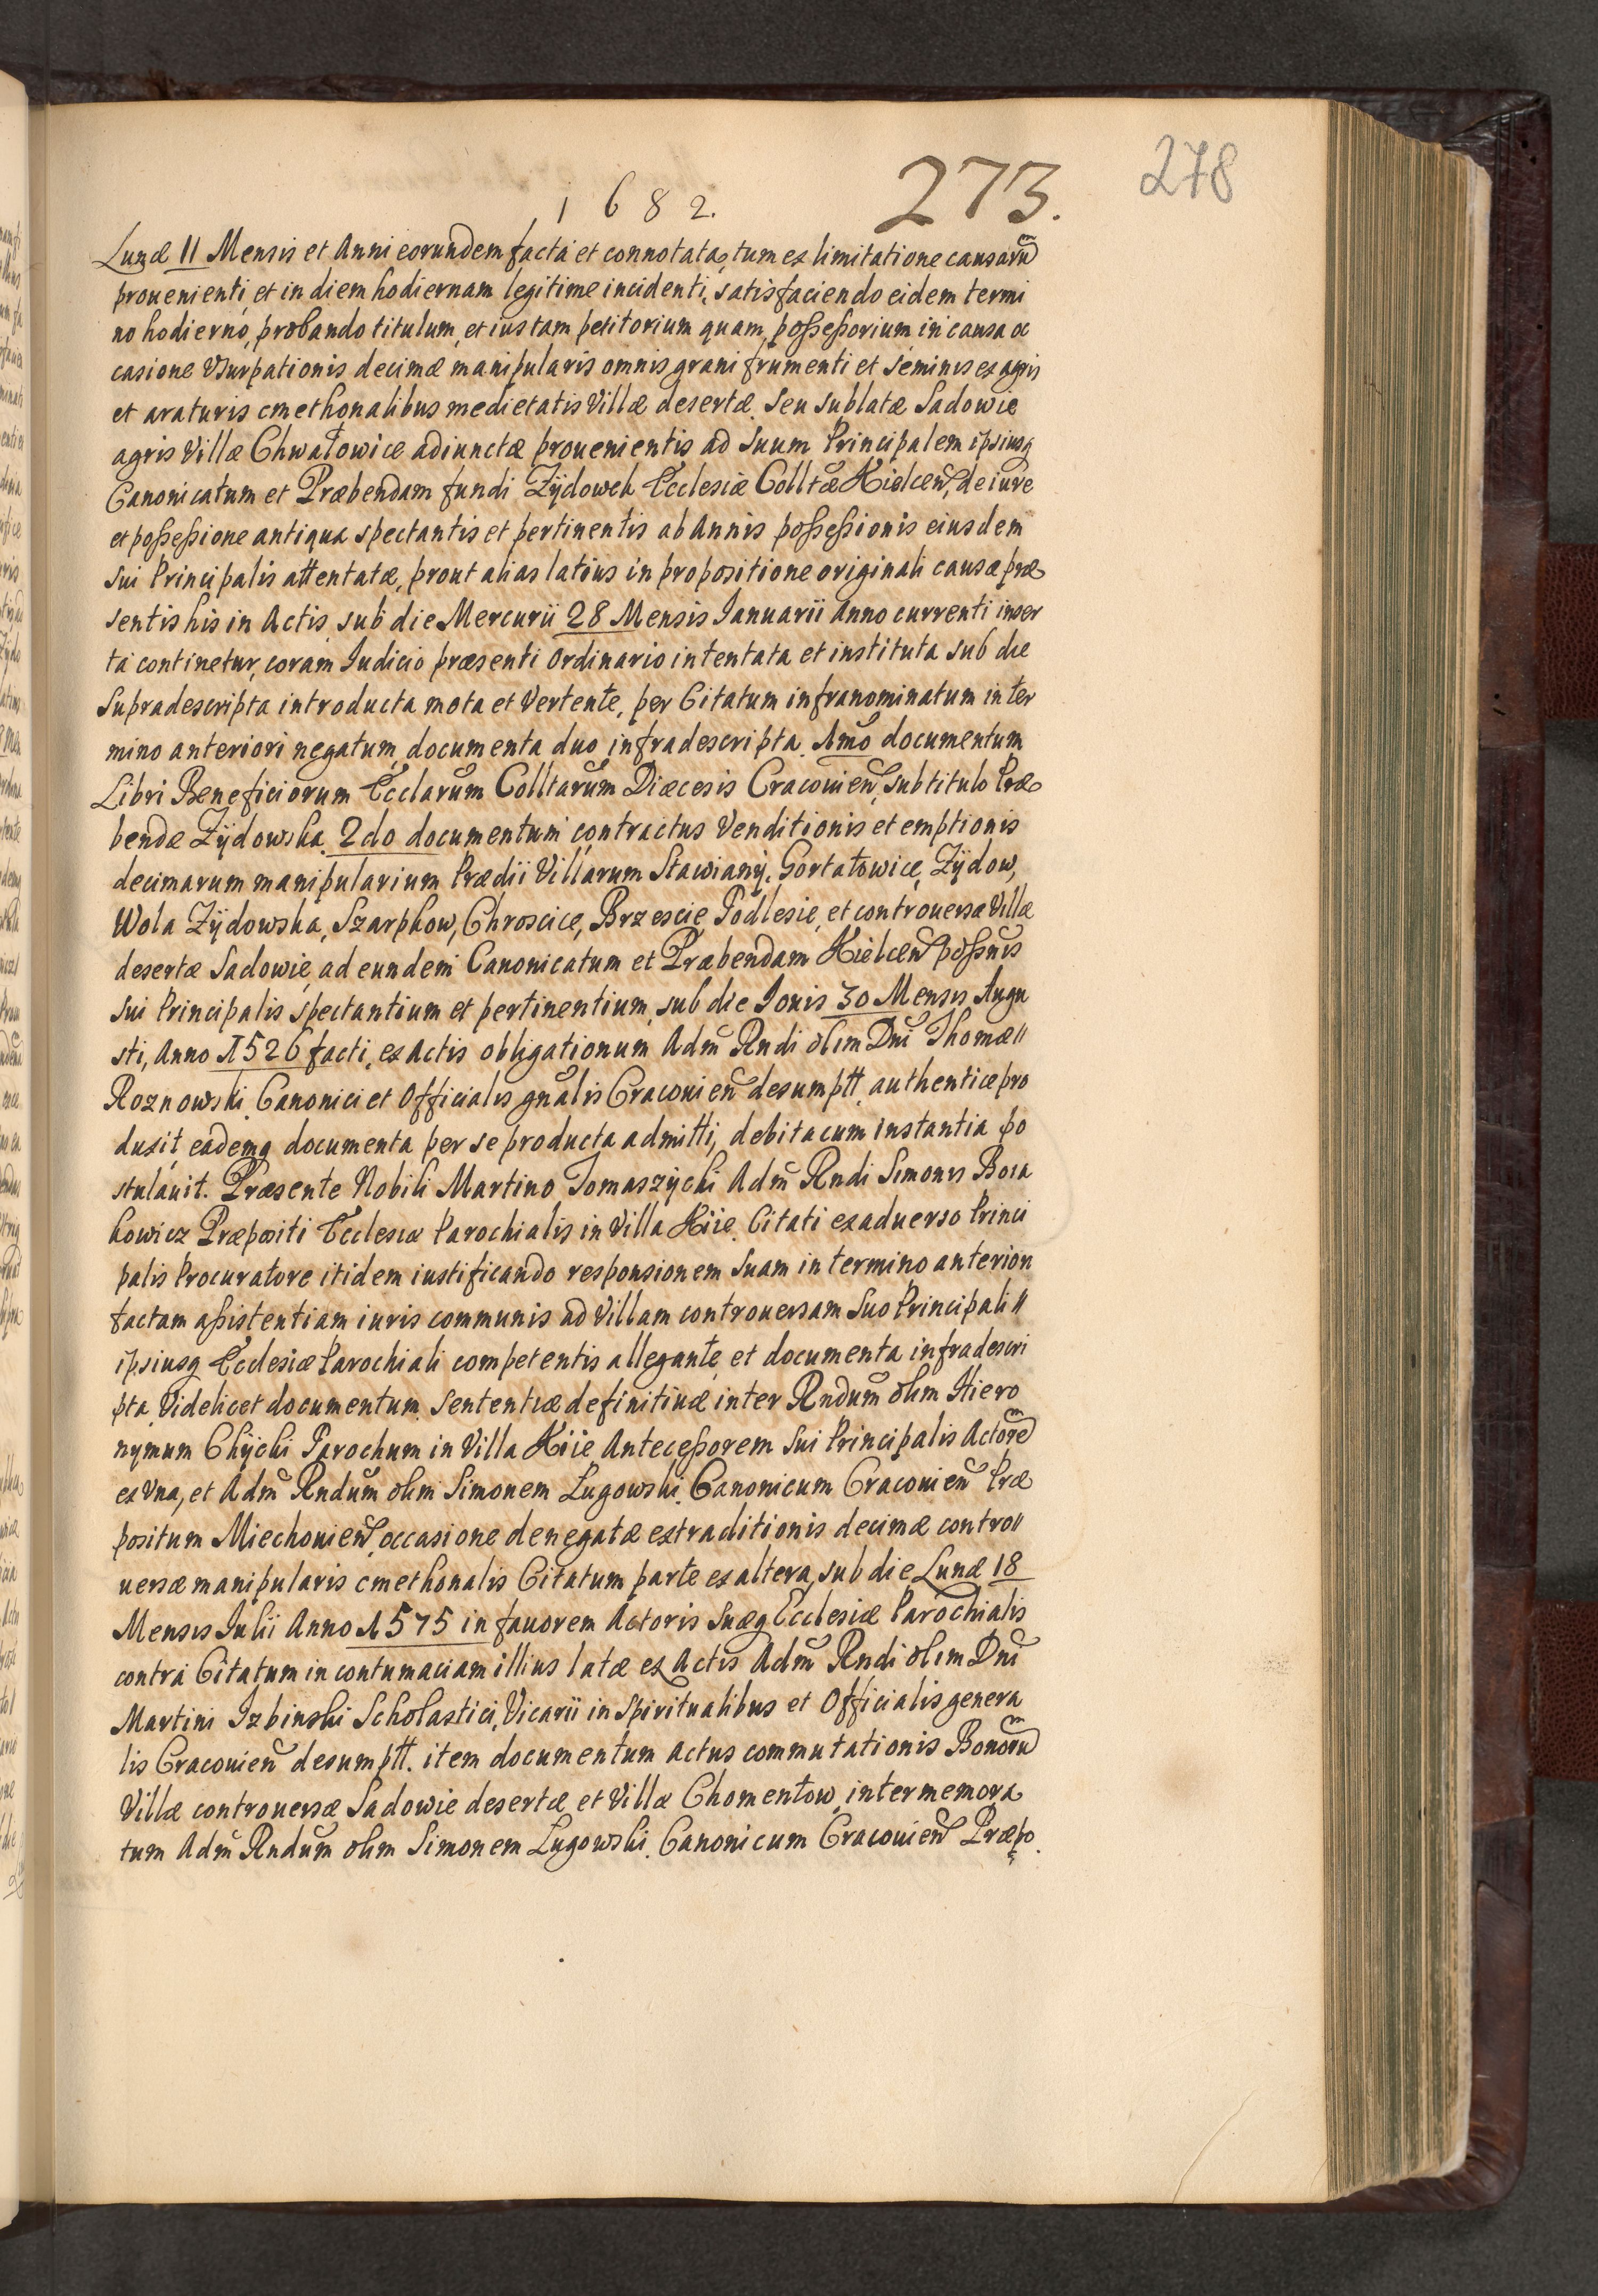 278
1682. 273.
Lunæ 11 Mensis et Anni eorundem facta et connotata, tum ex limitatione causarũ
prouenienti, et in diem hodiernam legitime incidenti, satisfaciendo eidem termi
no hodierno, probando titulum, et ius tam petitorium quam possessorium in causa oc
casione Vsurpationis decimæ manipularis omnis grani frumenti et seminis ex agris
et araturis cmethonalibus medietatis Villæ desertæ seu sublatæ Sadowie
agris Villæ Chwałowice adiunctæ prouenientis ad suum Principalem ipsiusq
Canonicatum et Præbendam fundi Zÿdowek Ecclesiæ Colltæ Kielceñ, de iure
et possessione antiqua spectantis et pertinentis ab Annis possessionis eiusdem
sui Principalis attentatæ, prout alias latius in propositione originali causæ præ
sentis his in Actis sub die Mercurii 28 Mensis Ianuarii Anno currenti inser
ta continetur, coram Iudicio præsenti Ordinario intentata et instituta sub die
supradescripta introducta mota et Vertente, per Citatum infranominatum in ter
mino anteriori negatum, documenta duo infradescripta 1mo documentum
Libri Beneficiorum Ecclarum Colltarum Diæcesis Cracouieñ, sub titulo Præ
bendæ Zÿdowska. 2do documentum contractus Venditionis et emptionis
decimarum manipularium Prædii Villarum Stawianÿ, Gortatowice, Zÿdow,
Wola Zÿdowska, Szarpkow, Chroscice, Brzescie, Podlesie, et controuersæ Villæ
desertæ Sadowie, ad eundem Canonicatum et Præbendam Kielceñ possñis
sui Principalis spectantium et pertinentium, sub die Iouis 30 Mensis Augu
sti, Anno 1526 facti, ex Actis obligationum Adm̃ Rndi olim Dñi Thomæ
Roznowski Canonici et Officialis gñalis Cracouieñ desumptt. authentice pro
duxit, eademq documenta per se producta admitti, debita cum instantia po
stulauit. Præsente Nobili Martino Tomaszÿcki Adm̃ Rndi Simonis Bora
kowicz Præpositi Ecclesiæ Parochialis in Villa Kiie Citati ex aduerso Princi
palis Procuratore itidem iustificando responsionem suam in termino anteriori
factam assistentiam iuris communis ad Villam controuersam suo Principali
ipsiusq Ecclesiæ Parochiali competentis allegante, et documenta infradescri
pta Videlicet documentum sententiæ definitiuæ inter Rndum olim Hiero
nymum Chÿcki Parochum in Villa Kiie Antecessorem sui Principalis Actorẽ
ex Vna, et Adm̃ Rndum olim Simonem Ługowski Canonicum Cracouieñ Præ
positum Miechouieñ, occasione denegatæ extraditionis decimæ contro
uersæ manipularis cmethonalis Citatum parte ex altera, sub die Lunæ 18
Mensis Iulii Anno 1575 in fauorem Actoris suæq Ecclesiæ Parochialis
contra Citatum in contumaciam illius latæ ex Actis Adm̃ Rndi olim Dñi
Martini Izbinski Scholastici, Vicarii in Spiritualibus et Officialis genera
lis Cracouieñ desumptt. item documentum actus commutationis Bonorũ
Villæ controuersæ Sadowie desertæ et Villæ Chomentow, inter memora
tum Adm̃ Rndum olim Simonem Ługowski Canonicum Cracouieñ Præpo